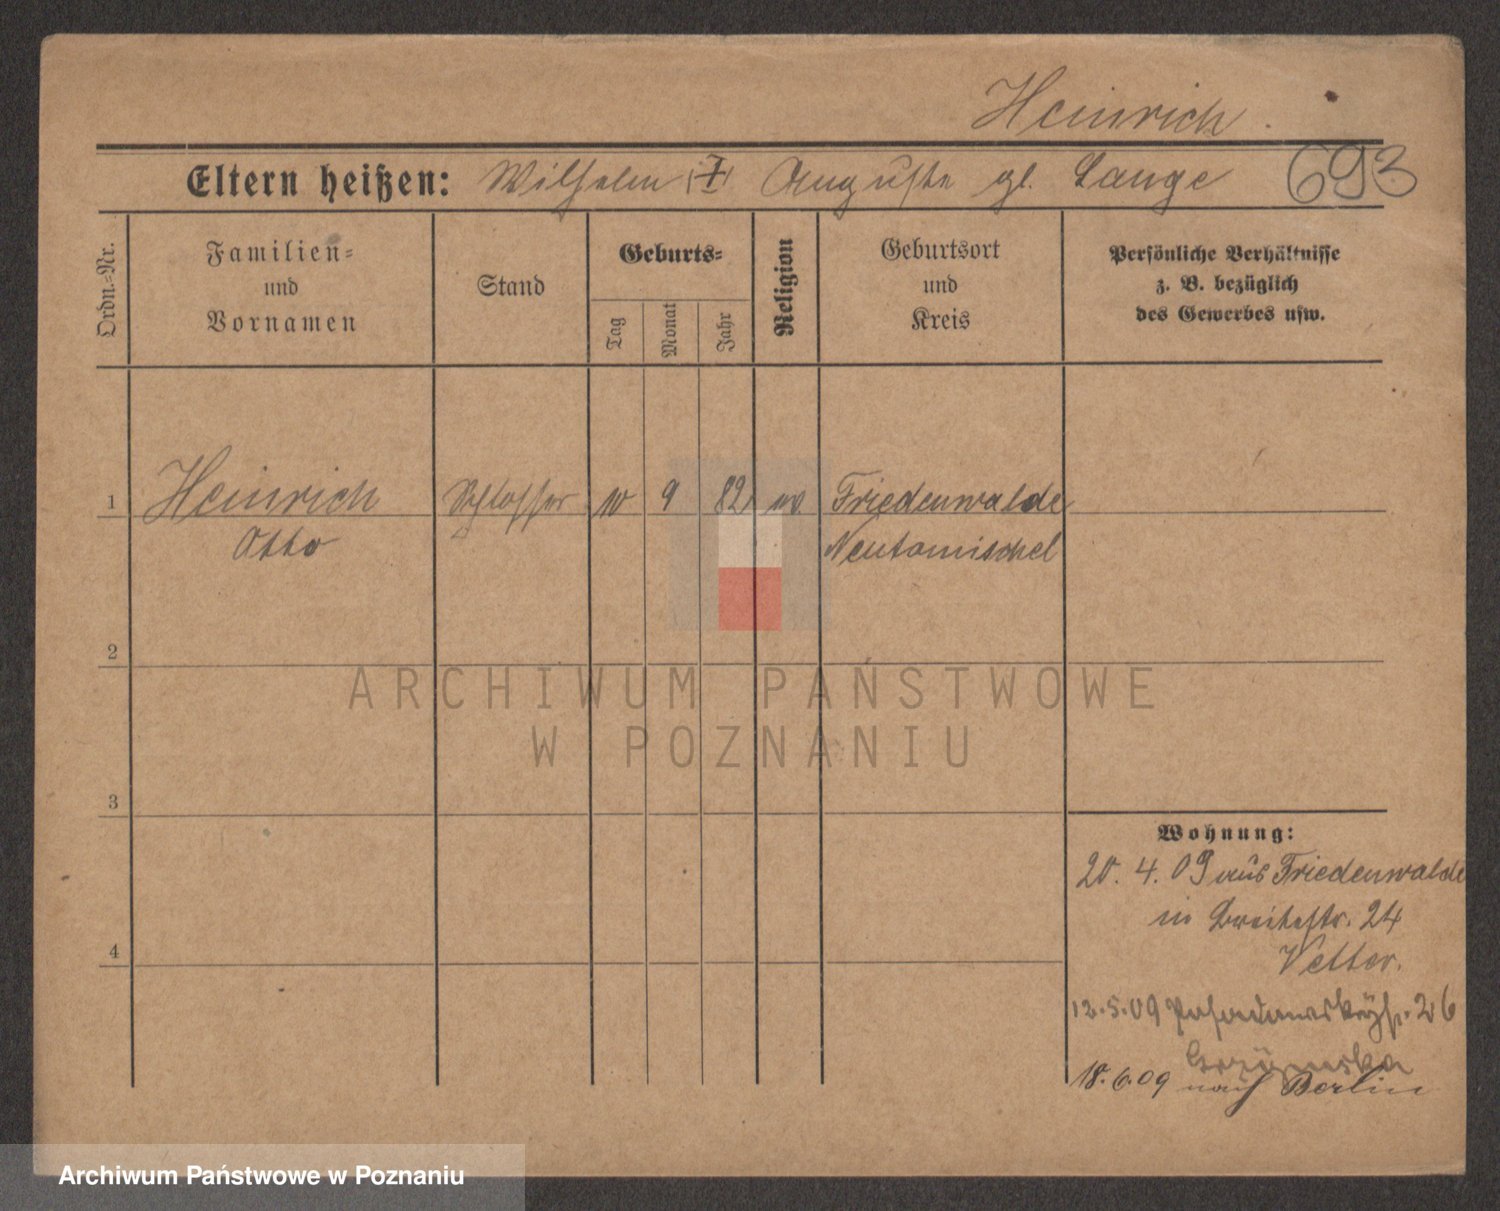 Heinrich.
Eltern heißen: Wilhelm (†) Auguste gb. Lange 693
Ordn.=Nr.
Familien=
und
Vornamen
Stand
Geburts=
Tag
Monat
Jahr
Religion
Geburtsort
und
Kreis
Persönliche Verhältnisse
z. B. bezüglich
des Gewerbes usw.
1 Heinrich Schlosser 10 9 82 ev. Friedenwalde
Otto Neutomischel
2
3
4
Wohnung:
20. 4. 09 aus Friedenwalde
in Breitestr. 24
Vetter.
12.5.09 26
18.6.09 nach Berlin
ARCHIWUM PAŃSTWOWE
W POZNANIU
Archiwum Państwowe w Poznaniu